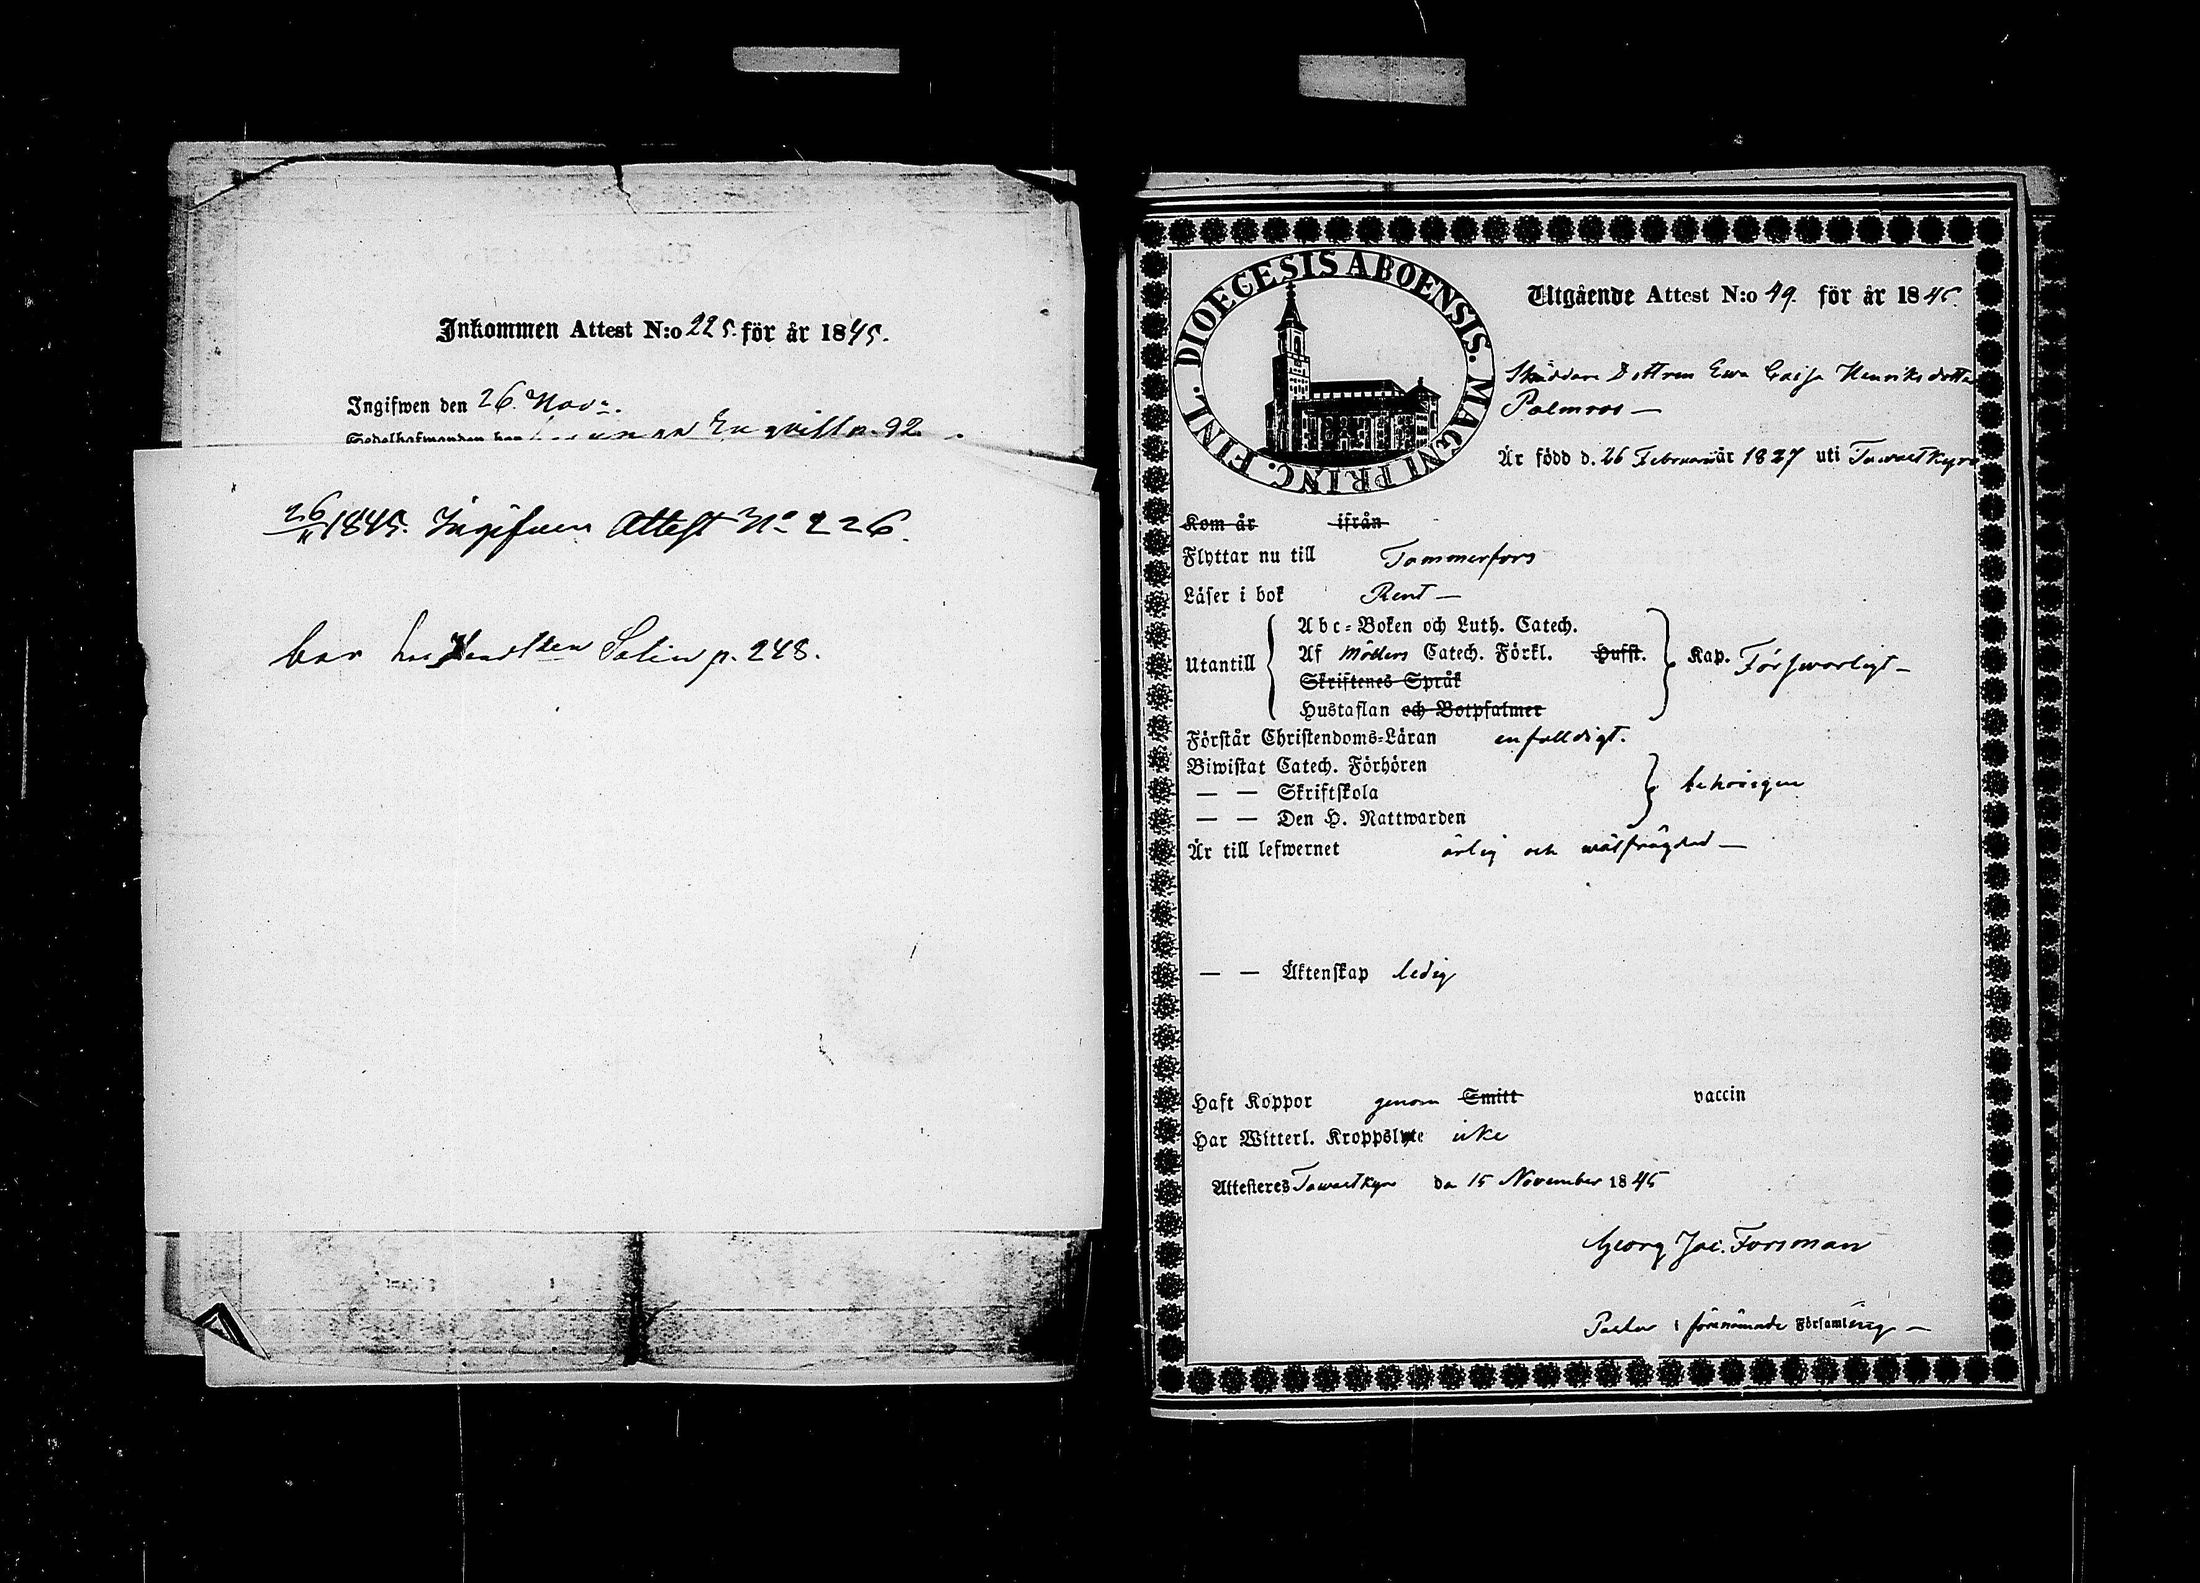 Inkommen Attest N:o 225. för år 1845.
Ingifwen den 26. Nov:.
Sedelhafwanden bor Enqvist p. 92.
26/11 1845. Ingifven Attest No 226.
bor hos Handlden Salin p. 248.
DIOECESIS ABOENSIS. MAGNI PRINC. FINL.
Utgående Attest N:o 49. för år 1845.
Skräddare Dottren Ewa Caisa Henriksdotter
Palmroos —
Är född d. 26 Februari år 1827 uti Tawastkyro
Kom år ifrån
Flyttar nu till Tammerfors
Läser i bok Rent —
Utantill
Abc-Boken och Luth. Catech.
Af Möllers Catech. Förkl. Hufst.
Skriftenes Språk
Hustaflan och Botpsalmer
Kap. Förswarligt —
Förstår Christendoms-Läran enfalldigt.
Biwistat Catech. Förhören
— — Skriftskola
— — Den H. Nattwarden
behörigen
Är till lefwernet ärlig och wälfrägdad —
— — Äktenskap ledig
Haft Koppor genom Smitt vaccin
Har Witterl. Kroppslyte icke
Attesteres Tawastkyro den 15 November 1845
Georg Jac. Forsman
Pastor i förenämnde Församling —